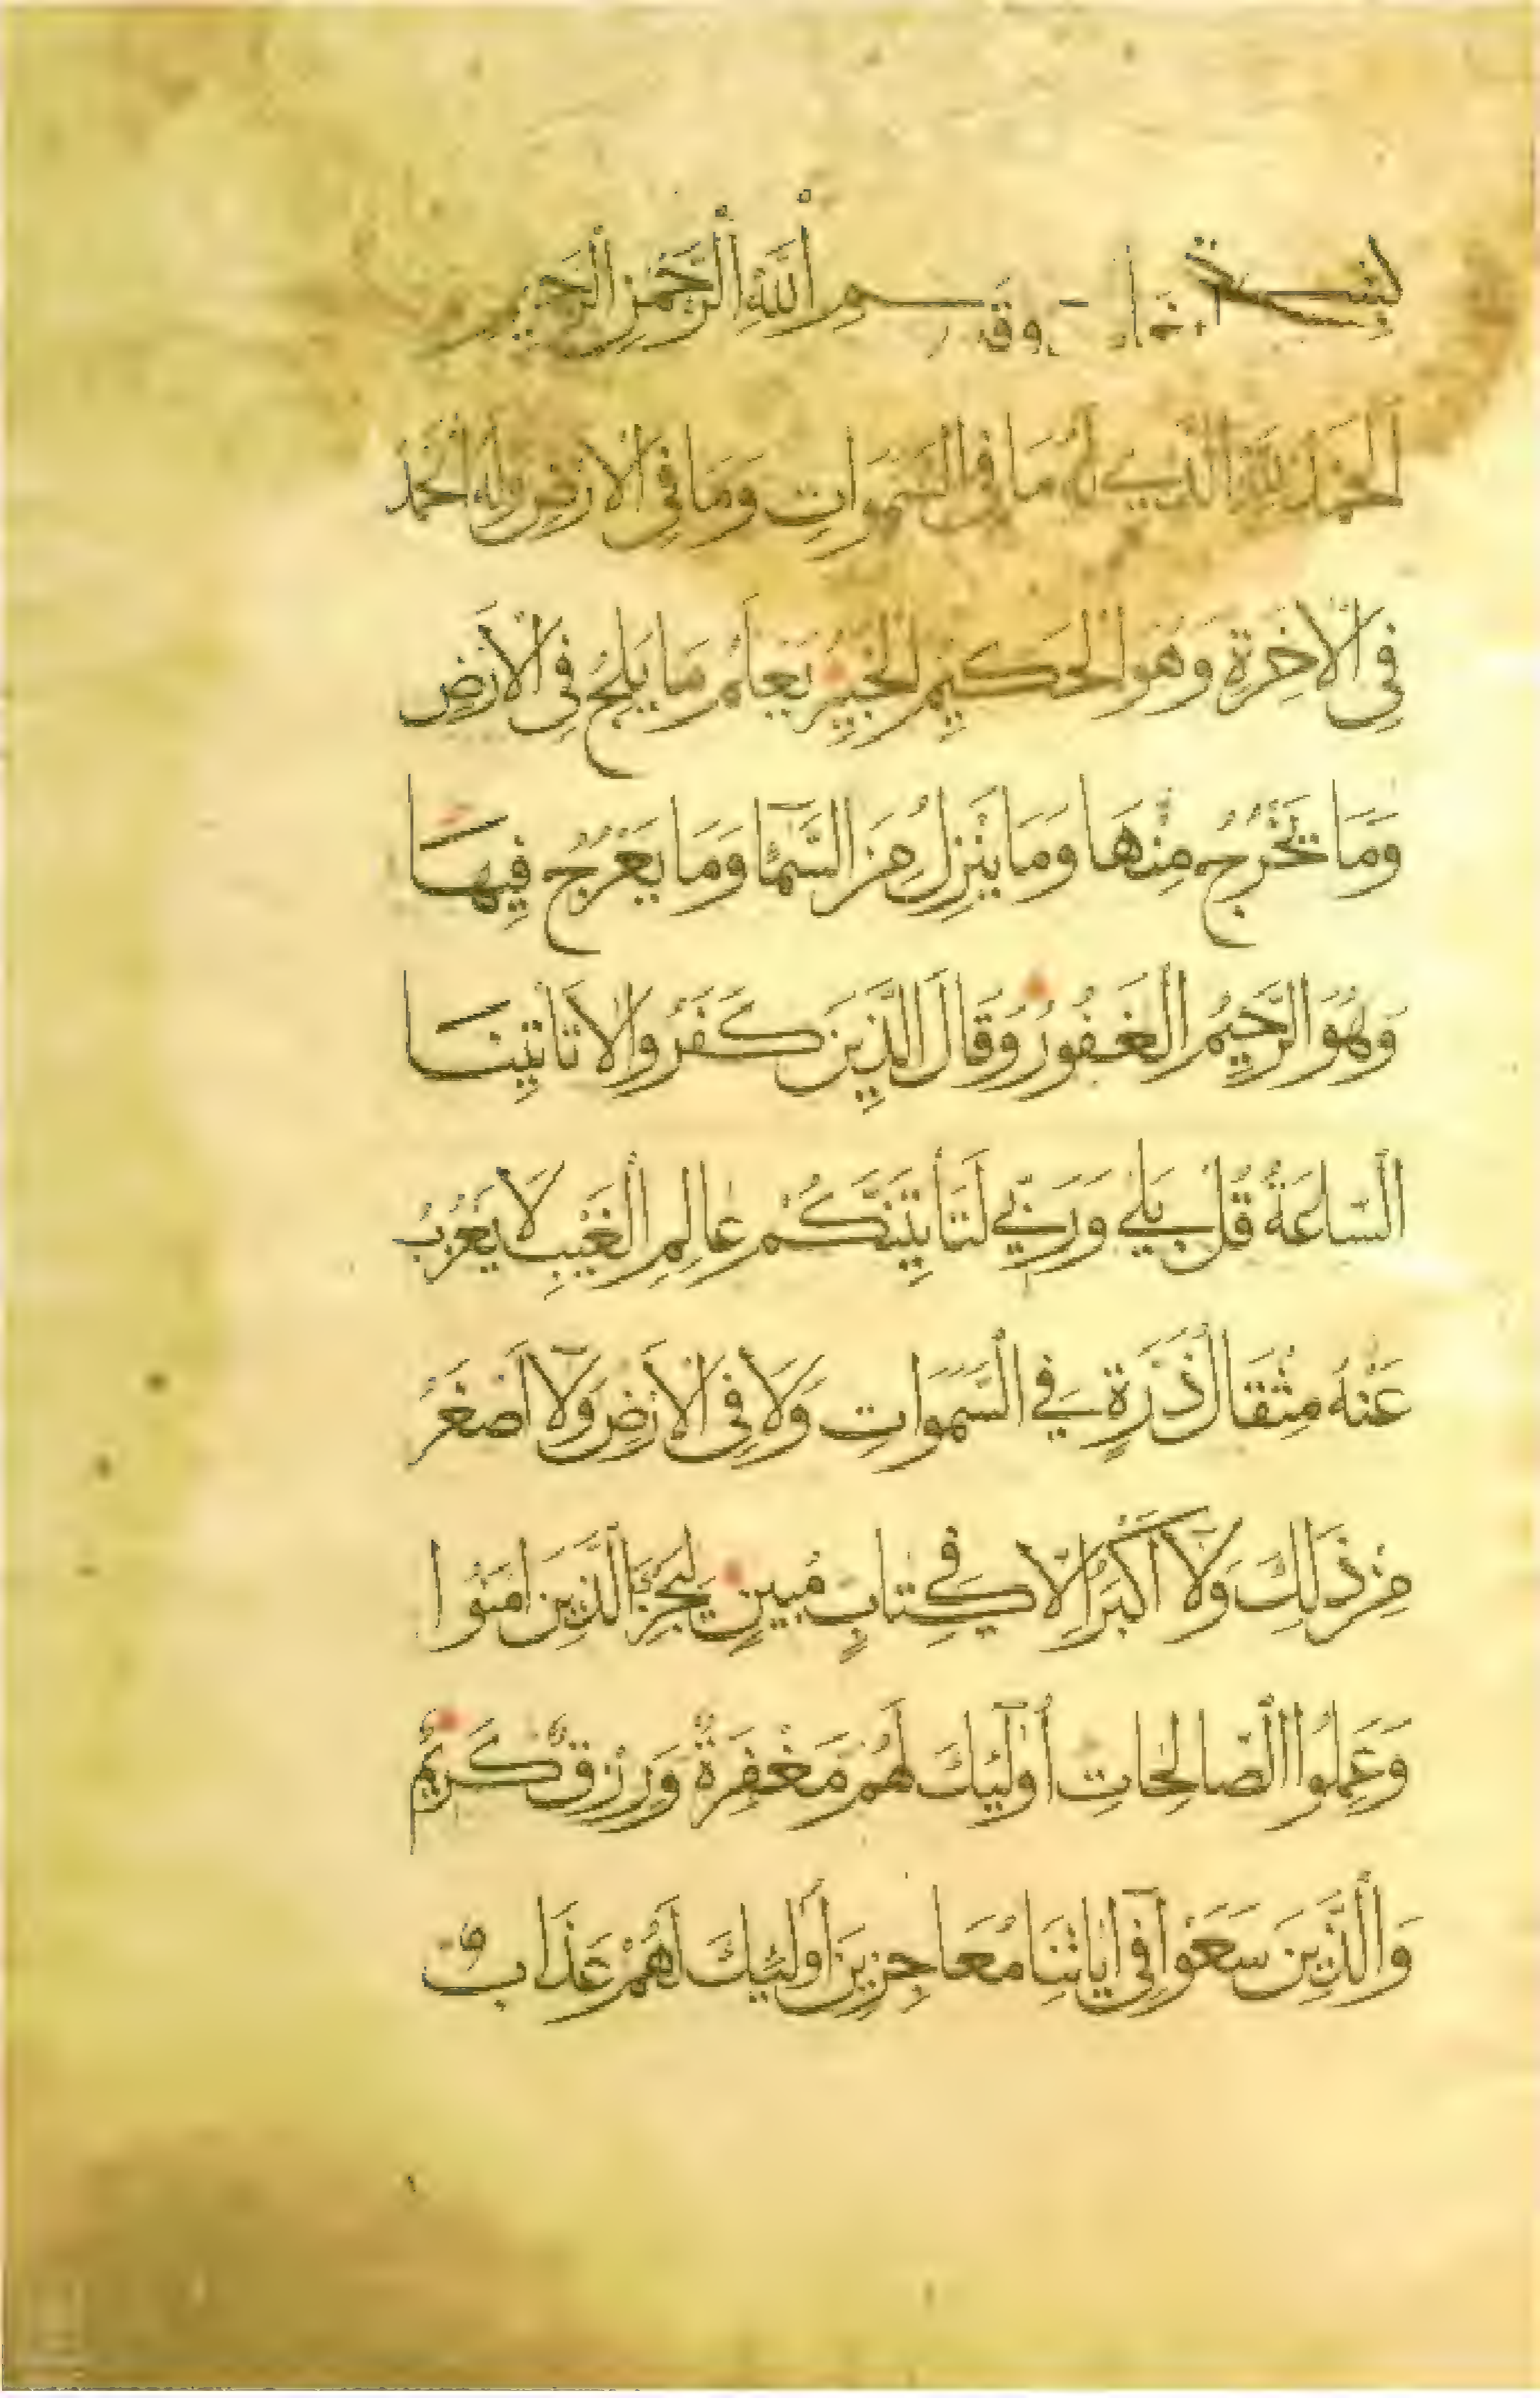 بِسْمِ اللَّهِ الرَّحْمَنِ الرَّحِيمِ
الْحَمْدُ لِلَّهِ الَّذِي لَهُ مَا فِي السَّمَوَاتِ وَمَا فِي الْأَرْضِ وَلَهُ الْحَمْدُ
فِي الْآخِرَةِ وَهُوَ الْحَكِيمُ الْخَبِيرُ يَعْلَمُ مَا يَلِجُ فِي الْأَرْضِ
وَمَا يَخْرُجُ مِنْهَا وَمَا يَنْزِلُ مِنَ السَّمَآءِ وَمَا يَعْرُجُ فِيهَا
وَهُوَ الرَّحِيمُ الْغَفُورُ وَقَالَ الَّذِينَ كَفَرُوا لَا تَأْتِينَا
السَّاعَةُ قُلْ بَلَى وَرَبِّي لَتَأْتِيَنَّكُمْ عَالِمِ الْغَيْبِ لَا يَعْزُبُ
عَنْهُ مِثْقَالُ ذَرَّةٍ فِي السَّمَوَاتِ وَلَا فِي الْأَرْضِ وَلَآ أَصْغَرُ
مِنْ ذَلِكَ وَلَآ أَكْبَرُ إِلَّا فِي كِتَابٍ مُبِينٍ لِيَجْزِيَ الَّذِينَ آمَنُوا
وَعَمِلُوا الصَّالِحَاتِ أُولَٰٓئِكَ لَهُمْ مَغْفِرَةٌ وَرِزْقٌ كَرِيمٌ
وَالَّذِينَ سَعَوْا فِيٓ آيَاتِنَا مُعَاجِزِينَ أُولَئِكَ لَهُمْ عَذَابٌ